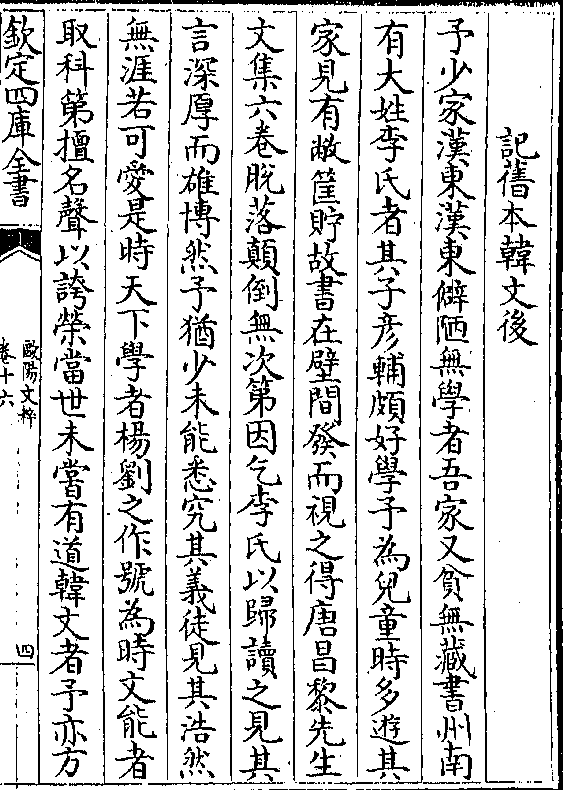 記舊本韓文後
予少家漢東漢東僻陋無學者吾家又貧無藏書州南
有大姓李氏者其子彦輔頗好學予為兒童時多遊其
家見有敝筐貯故書在壁間發而視之得唐昌黎先生
文集六卷脱落顛倒無次第因乞李氏以歸讀之見其
言深厚而雄博然予猶少未能悉究其義徒見其浩然
無涯若可愛是時天下學者楊劉之作號為時文能者
取科第擅名聲以誇榮當世未嘗有道韓文者予亦方
欽定四庫全書
歐陽文粹
卷十六
四